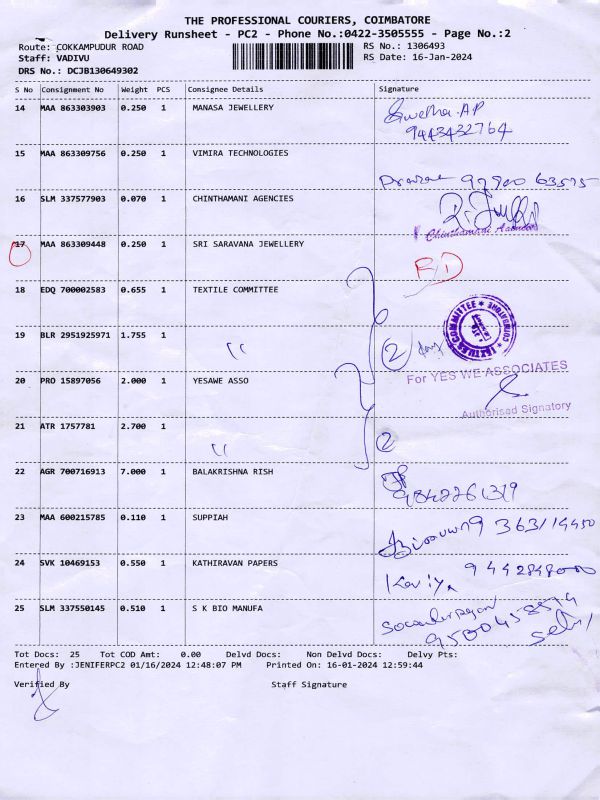 THE PROFESSIONAL COURIERS, COIMBATORE
Delivery Runsheet - PC2 - Phone No.:0422-3505555 - Page No.:2
Route: COKKAMPUDUR ROAD RS No.: 1306493
Staff: VADIVU RS Date: 16-Jan-2024
DRS No.: DCJB130649302
S No Consignment No Weight PCS Consignee Details Signature
14 MAA 863303903 0.250 1 MANASA JEWELLERY Swetha.AP
9443432764
15 MAA 863309756 0.250 1 VIMIRA TECHNOLOGIES
97900 63575
16 SLM 337577903 0.070 1 CHINTHAMANI AGENCIES
Chinthamani
17 MAA 863309448 0.250 1 SRI SARAVANA JEWELLERY
RD
18 EDQ 700002583 0.655 1 TEXTILE COMMITTEE
TEXTILES COMMITTEE * COIMBATORE *
19 BLR 2951925971 1.755 1 "
2
For YES WE ASSOCIATES
20 PRO 15897056 2.000 1 YESAWE ASSO
Authorised Signatory
21 ATR 1757781 2.700 1 "
2
22 AGR 700716913 7.000 1 BALAKRISHNA RISH
9842261319
23 MAA 600215785 0.110 1 SUPPIAH
24 SVK 10469153 0.550 1 KATHIRAVAN PAPERS
Kaviya 9442848000
25 SLM 337550145 0.510 1 S K BIO MANUFA
Selvi
Tot Docs: 25 Tot COD Amt: 0.00 Delvd Docs: Non Delvd Docs: Delvy Pts:
Entered By :JENIFERPC2 01/16/2024 12:48:07 PM Printed On: 16-01-2024 12:59:44
Verified By Staff Signature